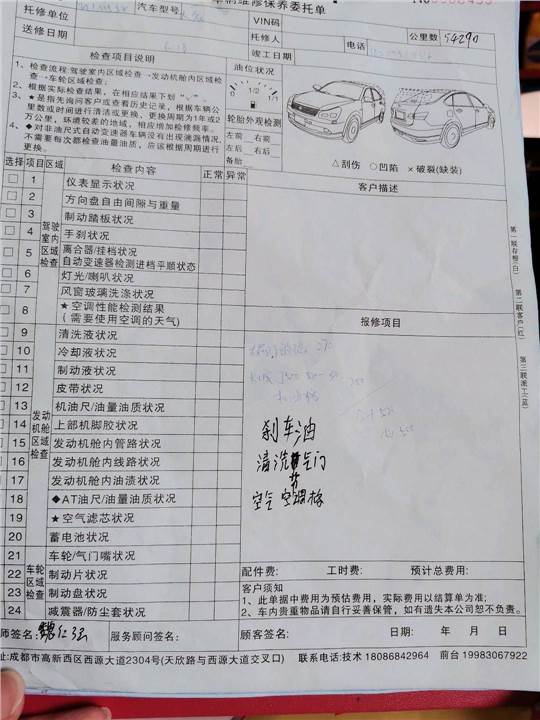 维修保养委托单
托修单位
汽车型号
VIN码
送修日期
托修人
电话
公里数 54290
竣工日期
检查项目说明
油位状况
0 1/2 1/1
1、检查流程:驾驶室内区域检查→发动机舱内区域检查→车轮区域检查。
2、根据实际检查结果,在相应结果下划“√”。
3、★是指先询问客户或查看历史记录,根据车辆公里数或时间进行清洁或更换,更换周期为1年或2万公里,环境较差的地域,相应增加检修频率。
4、◆对非油尺式自动变速器车辆没有出现泄漏情况,不需要每次都检查油量油质,应该根据周期进行更换。
轮胎外观检测
左前 右前
左后 右后
备胎
△刮伤 ○凹陷 ×破裂(缺装)
选择 项目 区域 检查内容 正常 异常
客户描述
驾驶室内区域检查
1 仪表显示状况
2 方向盘自由间隙与重量
3 制动踏板状况
4 手刹状况
5 离合器/挂档状况
自动变速器检测进档平顺状态
6 灯光/喇叭状况
7 风窗玻璃洗涤状况
8 ★空调性能检测结果
(需要使用空调的天气)
发动机舱区域检查
9 清洗液状况
10 冷却液状况
11 制动液状况
12 皮带状况
13 机油尺/油量油质状况
14 上部机脚胶状况
15 发动机舱内管路状况
16 发动机舱内线路状况
17 发动机舱内油渍状况
18 ◆AT油尺/油量油质状况
19 ★空气滤芯状况
20 蓄电池状况
车轮区域检查
21 车轮/气门嘴状况
22 制动片状况
23 制动盘状况
24 减震器/防尘套状况
报修项目
刹车油
清洗节气门
空气 空调格
配件费: 工时费: 预计总费用:
客户须知
1、此单据中费用为预估费用,实际费用以结算单为准;
2、车内贵重物品请自行妥善保管,如有遗失本公司恕不负责。
师签名:
服务顾问签名:
顾客签名:
日期: 年 月 日
址:成都市高新西区西源大道2304号(天欣路与西源大道交叉口) 联系电话:技术 18086842964 前台 19983067922
第一联存根(白)
第二联客户(红)
第三联派工(蓝)